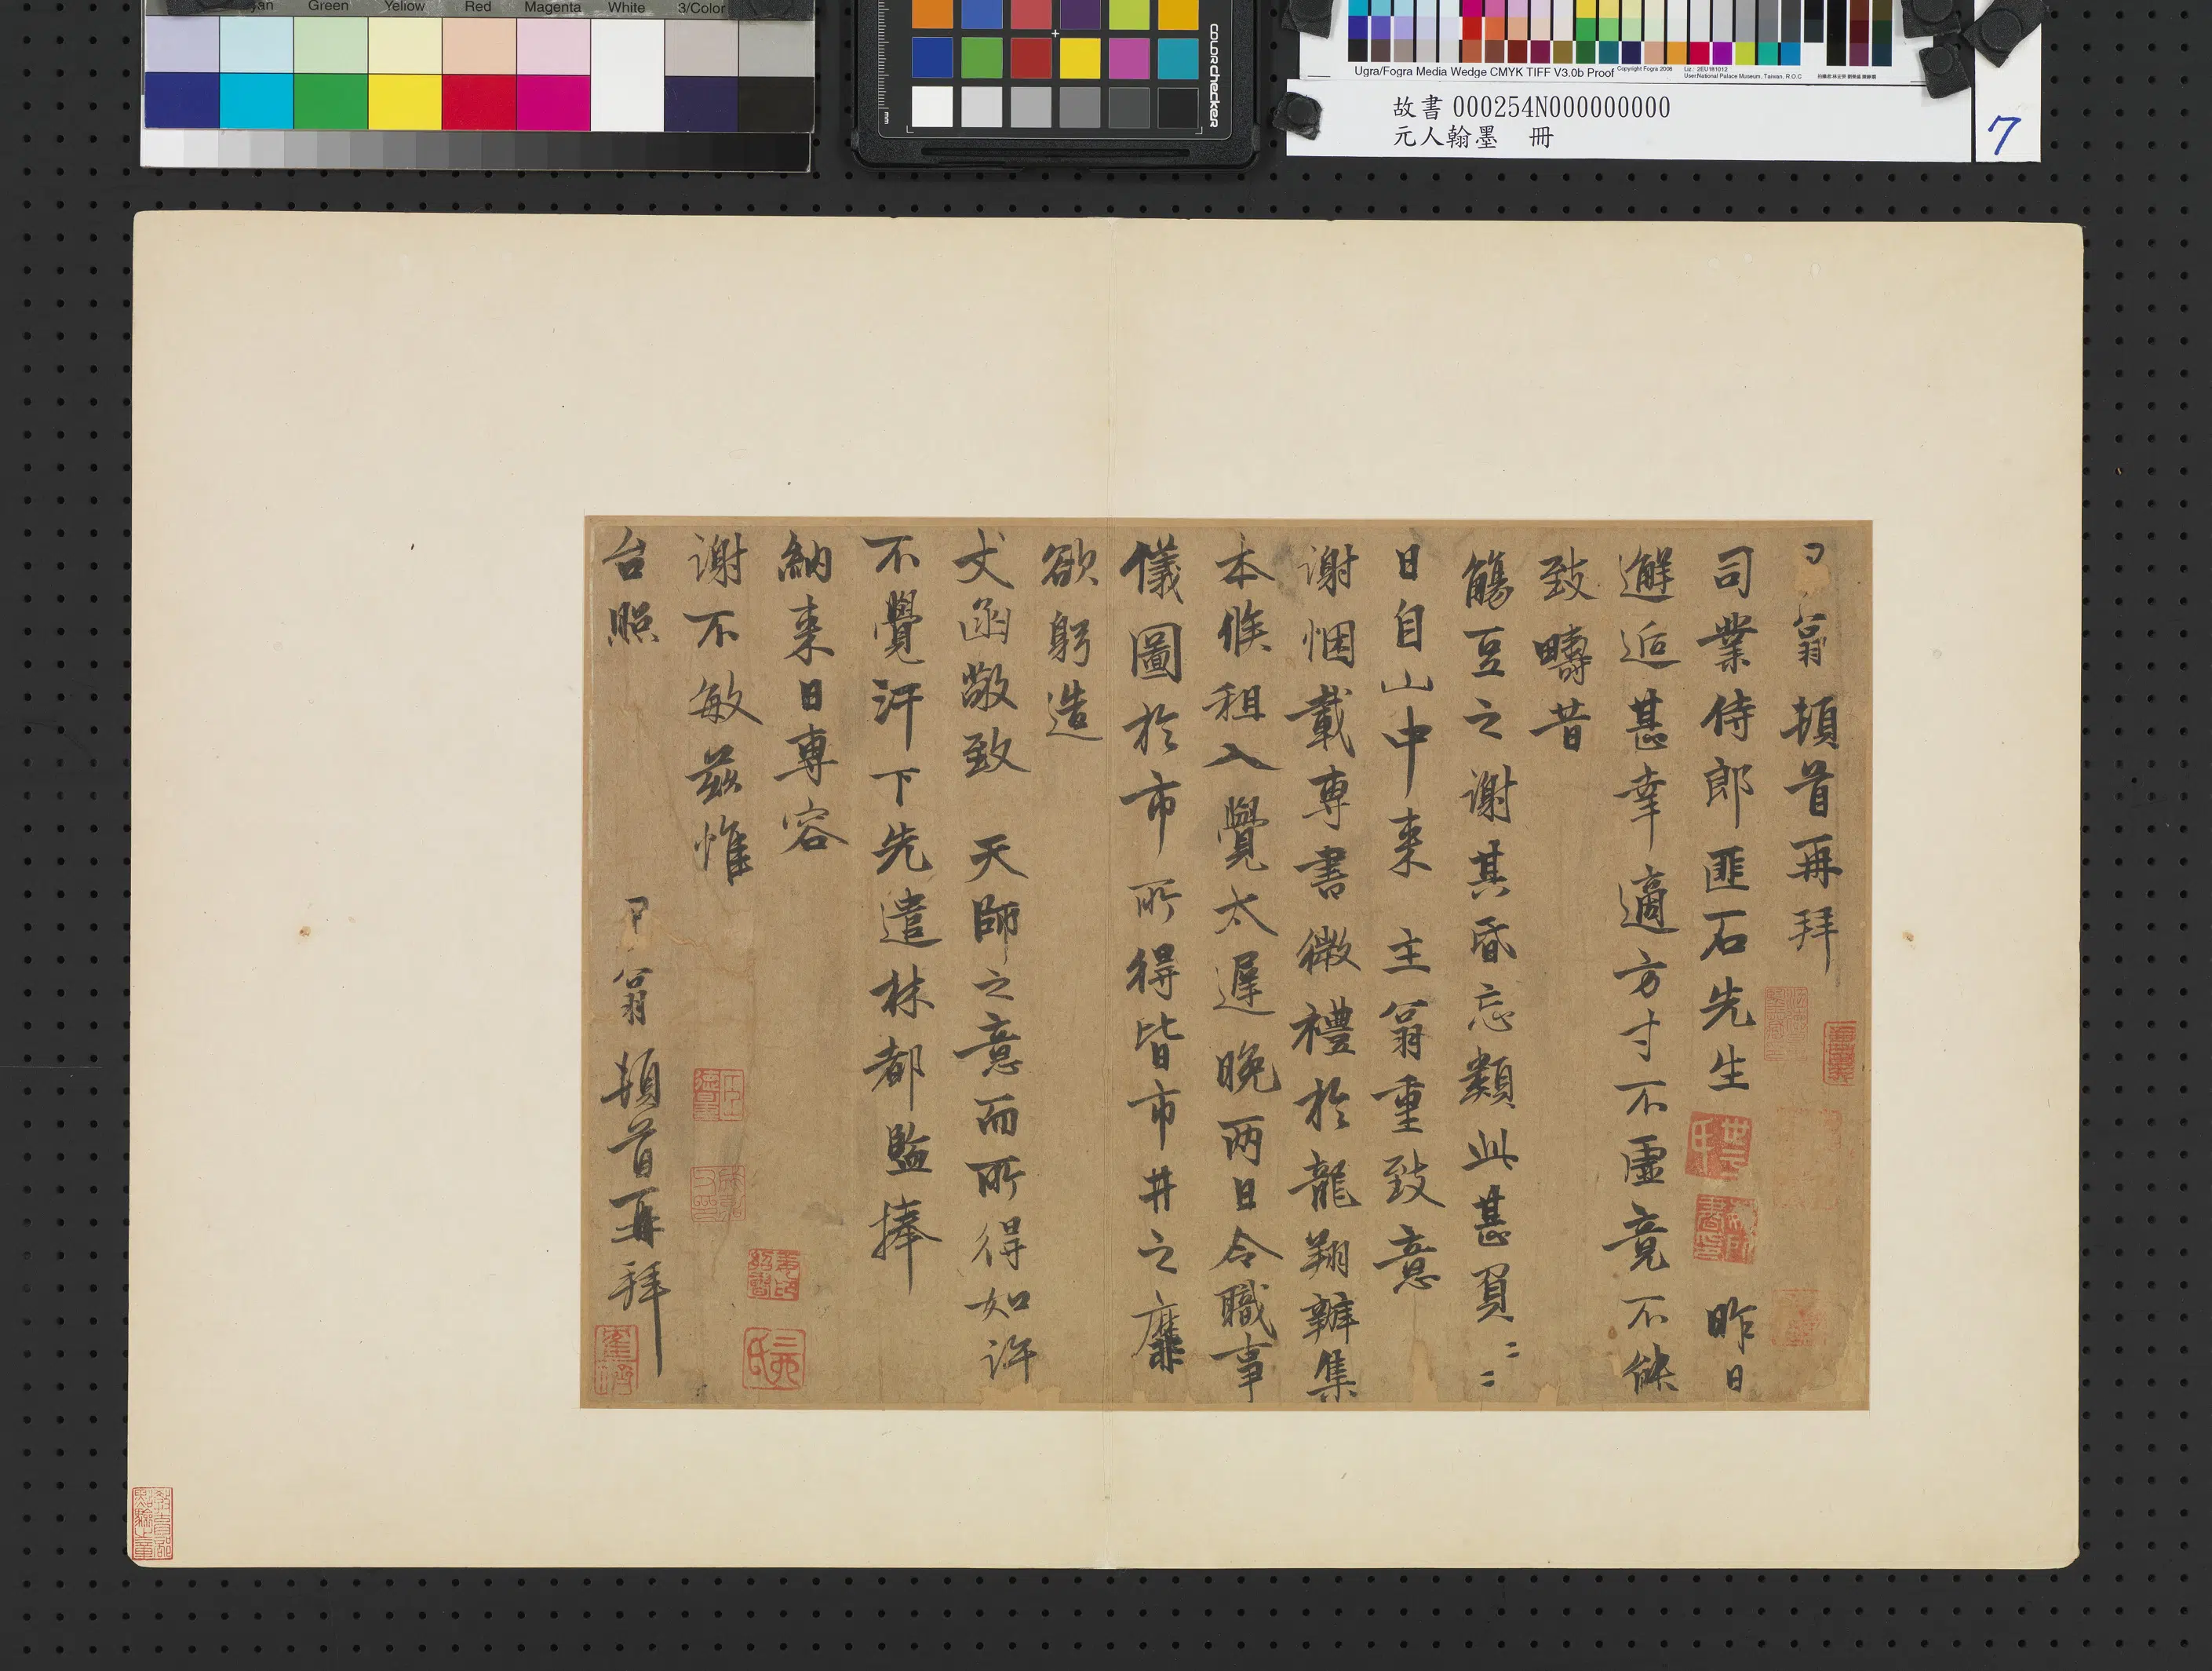 Green
Yellow
Red
Magenta
White
3/Color
colorchecker
mm
Ugra/Fogra Media Wedge CMYK TIFF V3.0b Proof
Copyright Fogra 2008
User:National Palace Museum, Taiwan, R.O.C
故書 000254N000000000
元人翰墨 冊
7
翁頓首再拜
司業侍郎匪石先生 昨日
邂逅甚幸適方寸不虛竟不能
致疇昔
觴豆之謝其昏忘類此甚負〻〻
日自山中来 主翁重致意
謝悃載專書微禮於龍翔辦集
本候租入覺太遲晚两日令職事
儀圖於市所得皆市井之靡
欲躬造
丈函敬致 天師之意而所得如許
不覺汗下先遣林都監捧
納来日專容
謝不敏兹惟
台照
翁頓首再拜